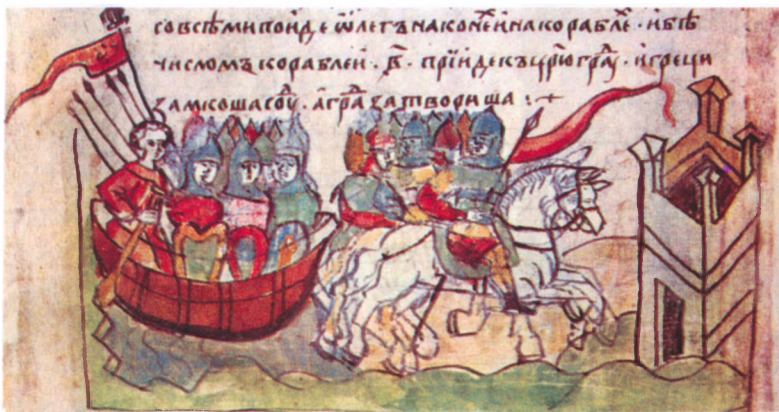 со всѣми поиде ѡлегъ на конеⷯ и на кораблеⷯ · и бѣ
числомъ кораблеи · в҃ · прїиде къ црⷭ҇юграⷣ · и греци
замкоша соуⷣ · а граⷣ затвориша :+